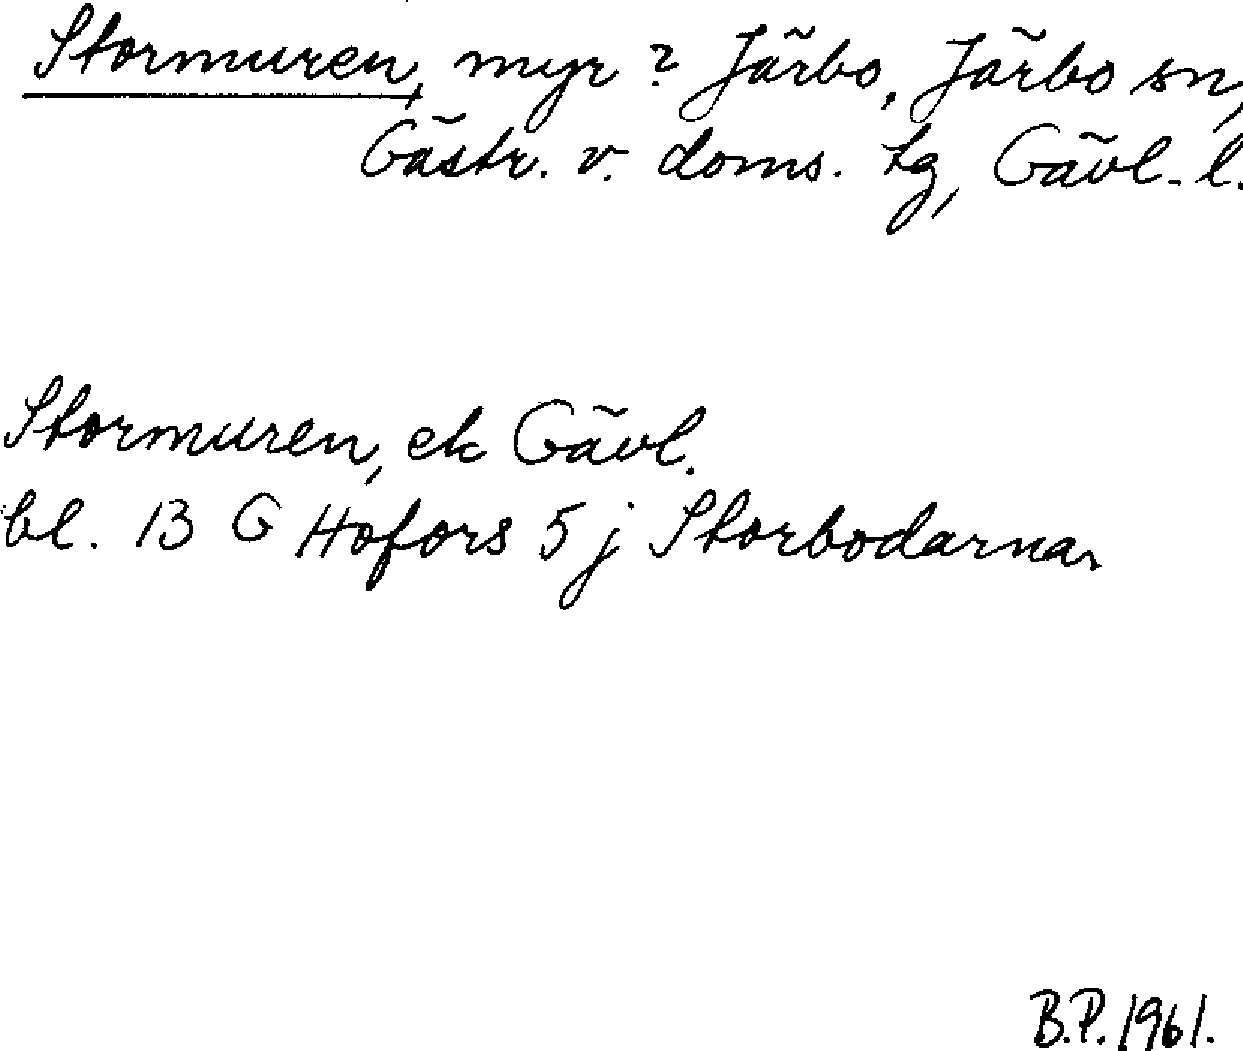 Stormuren, myr? Järbo, Järbo sn,
Gästr. v. doms. tg, Gävl. l.
Stormuren, ek Gävl.
bl. 13 G Hofors 5 j Storbodarna
B.P. 1961.